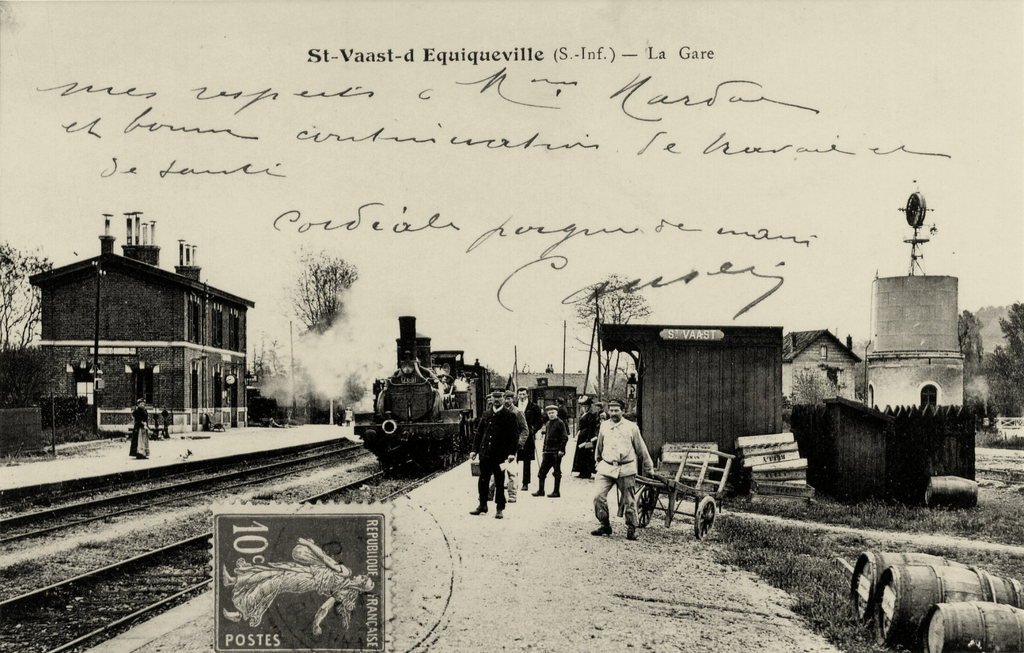 St-Vaast-d Equiqueville (S.-Inf.) — La Gare
mes respects à Mme
et bonne continuation de travail et
de santé
Cordiale poignée de main
St VAAST
10c
POSTES
REPUBLIQUE FRANÇAISE